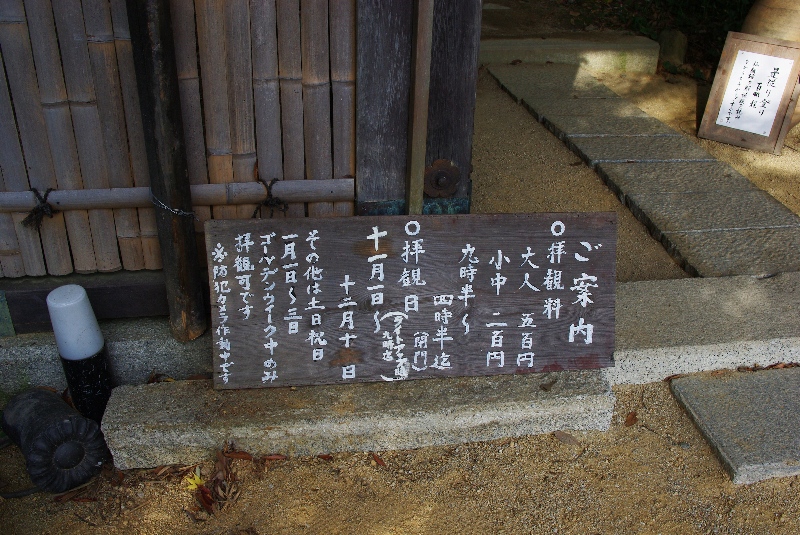 ご案内
○拝観料
大人 五百円
小中 二百円
九時半～
四時半迄
○拝観日 開門
十一月一日～
十二月十日
その他は土日祝日
一月一日～三日
ゴールデンウイーク十めみ
拝観可です
※防犯カメラ作動中です